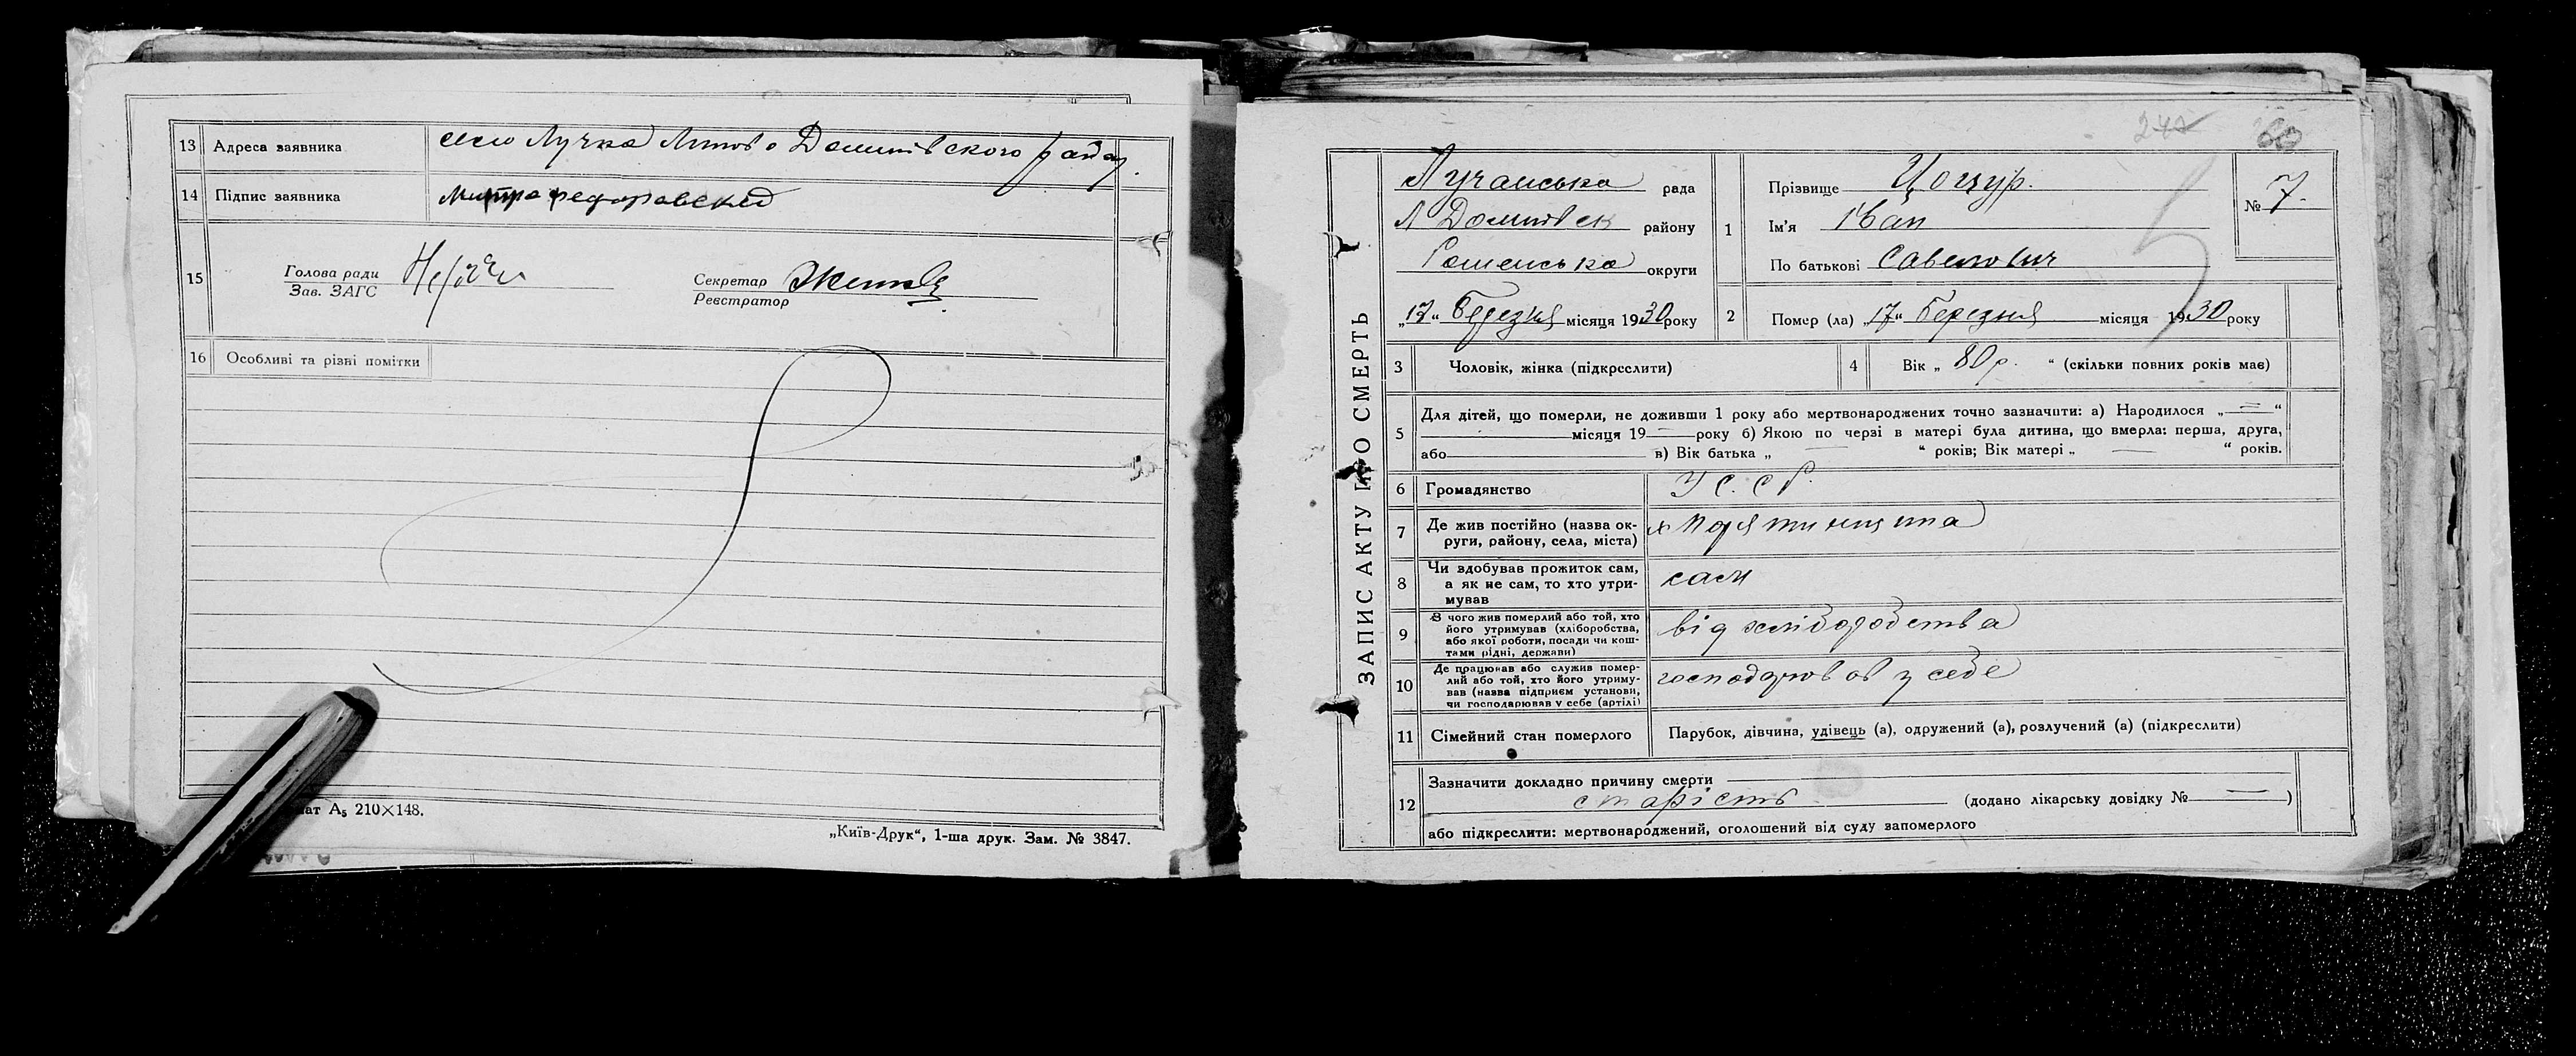 13 Адреса заявника село Лучка Липово Долинівского району.
14 Підпис заявника Митрофедоровский
15 Голова ради
Зав. ЗАГС
Секретар
Реєстратор
16 Особливі та різні помітки
ат А₅ 210×148.
„Київ-Друк“, 1-ша друк. Зам. № 3847.
60
ЗАПИС АКТУ ПРО СМЕРТЬ
Лучанська рада
Л Долинівськ району
Роменська округи
„17“ Березня місяця 1930 року
1 Прізвище Цоцур.
Ім'я Іван
По батькові Савелович
№ 7.
2 Помер (ла) „17“ Березня місяця 1930 року
3 Чоловік, жінка (підкреслити)
4 Вік „80 р. “ (скільки повних років має)
5 Для дітей, що померли, не доживши 1 року або мертвонароджених точно зазначити: а) Народилося „—“
місяця 19— року б) Якою по черзі в матері була дитина, що вмерла: перша, друга,
або в) Вік батька „ — “ років; Вік матері „ — “ років.
6 Громадянство У С. С Р.
7 Де жив постійно (назва ок-
руги, району, села, міста)
8 Чи здобував прожиток сам,
а як не сам, то хто утри-
мував
сам
9 З чого жив померлий або той, хто
його утримував (хліборобства,
або якої роботи, посади чи кош-
тами рідні, держави)
від хліборобства
10 Де працював або служив помер-
лий або той, хто його утриму-
вав (назва підприєм установи,
чи господарював у себе (артілі)
господарював у себе
11 Сімейний стан померлого Парубок, дівчина, удівець (а), одружений (а), розлучений (а) (підкреслити)
12 Зазначити докладно причину смерти
старість (додано лікарську довідку № — )
або підкреслити: мертвонароджений, оголошений від суду запомерлого